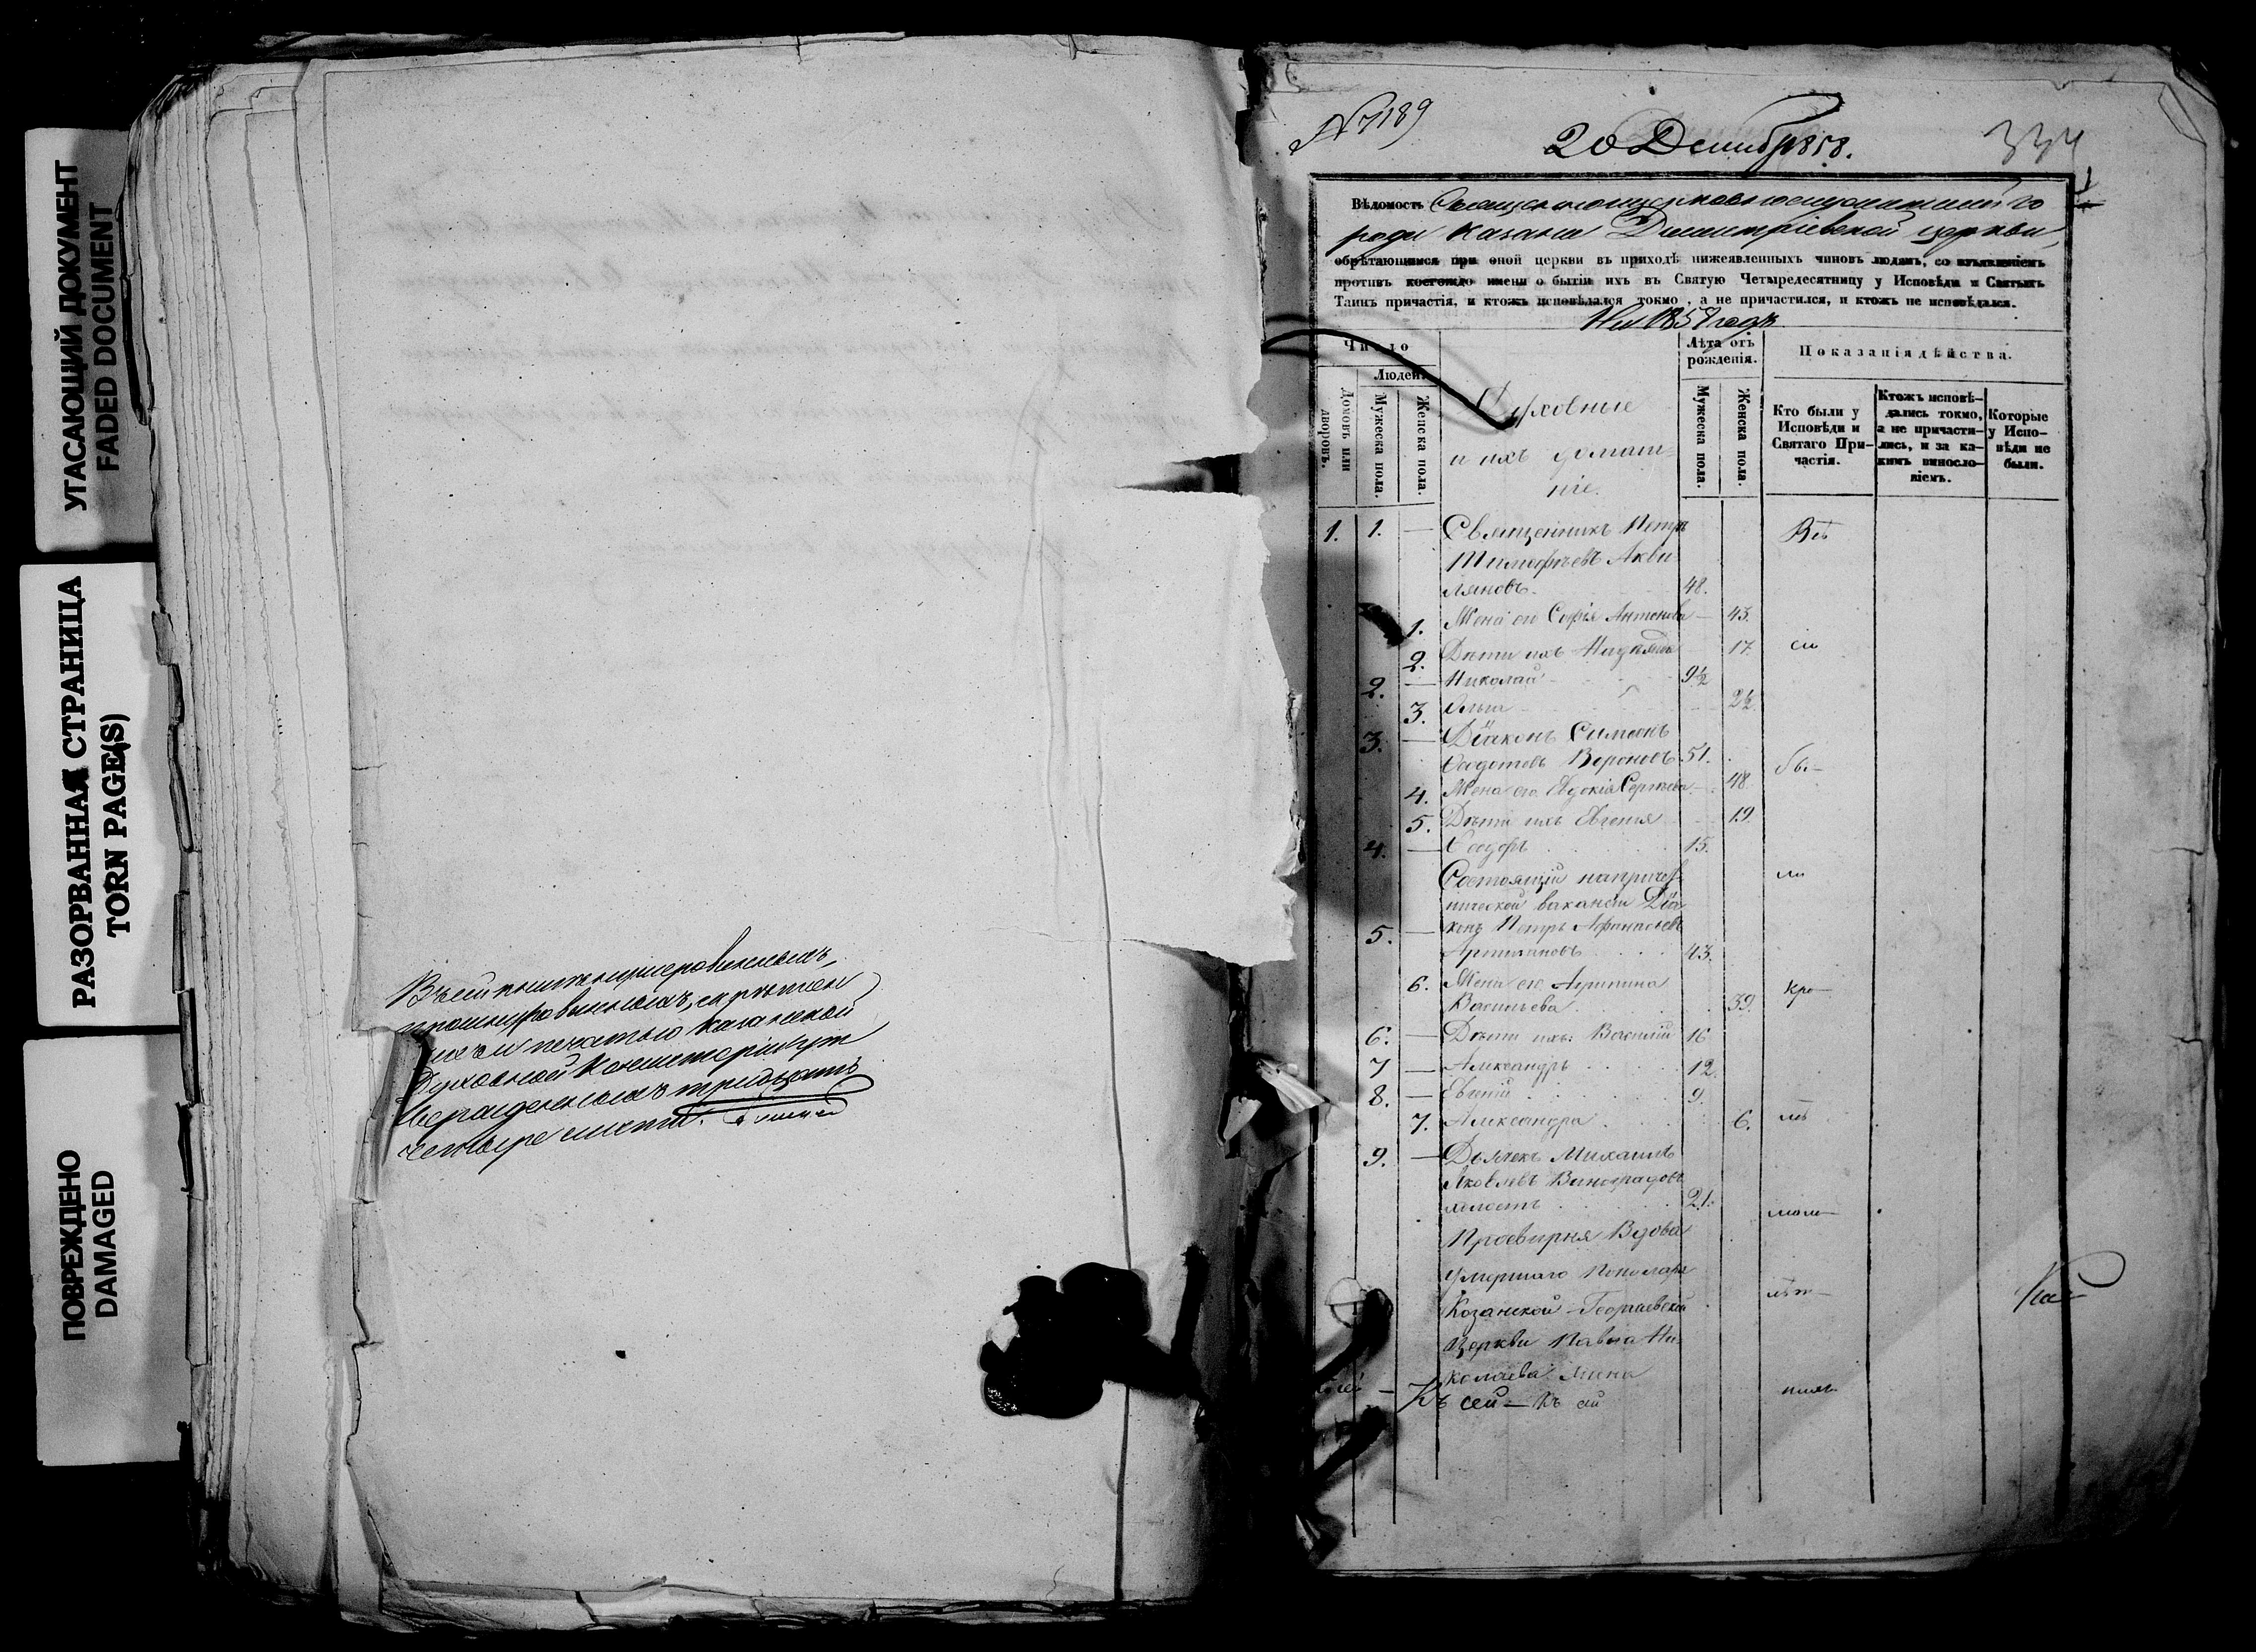 УГАСАЮЩИЙ ДОКУМЕНТ
FADED DOCUMENT
РАЗОРВАННАЯ СТРАНИЦА
TORN PAGE(S)
ПОВРЕЖДЕНО
DAMAGED
печатью Казанской
Духовной Консисторіи
тридцать
четыре листа.
№ 7189
20 Декабр 1858.
334
1
Вѣдомость Священноцерковнослужителей го
рода Казани Димитріевской церкви,
обрѣтающимся при оной церкви въ приходѣ нижеявленныхъ чиновъ людямъ, со изъявленіемъ
противъ коегождо имени о бытіи ихъ въ Святую Четыредесятницу у Исповѣди и Святыхъ
Таинъ причастія, и ктожъ исповѣдался токмо, а не причастился, и ктожъ не исповѣдался.
На 1858 годъ
Число
Людей.
Домовъ или дворовъ.
Мужеска пола.
Женска пола.
Духовные
и их домаш-
ніе.
Лѣта отъ рожденія.
Мужеска пола.
Женска пола.
Показанія дѣйства.
Кто были у
Исповѣди и
Святаго При-
частія.
Ктожъ исповѣ-
дались токмо,
а не причасти-
лись, и за ка-
кимъ винosло-
віемъ.
Которые
у Испо-
вѣди не
были.
1. 1. — Священникъ Петръ Всѣ
Тимофѣевъ Акви
ляновъ. 48.
1. Жена его Софія Антонова — 43.
2. Дѣти ихъ Надежда 17. сіи
2. — Николай 9½
3. Ольга 2½
3. — Діаконъ Симеонъ
Ѳедотовъ Вороновъ 51. бы—
4. Жена его Евдокія Сергѣева — 48.
5. Дѣти ихъ Евгенія 19.
4. — Ѳеодоръ 15.
Состоящій на причет- ли
нической вакансіи Діа
5. — конъ Петръ Афанасьевъ
43.
6. Жена его Агрипина кро—
Васильева 39.
6. — Дѣти ихъ: Василій 16
7 — Александръ 12.
8. — Евгеній 9.
7. Александра 6.
9. — Дьячекъ Михаилъ
Яковлевъ Виноградовъ
холостъ 21.
Просвирня Вдова
умершаго Пономаря
Козанской Георгіевской
церкви Павла Ни
колаева Анна
Къ сей — Къ сей